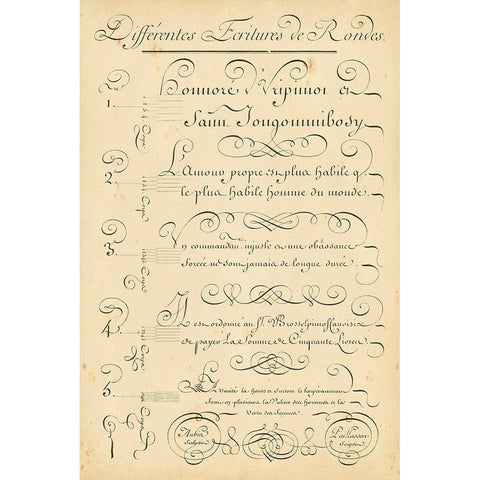 Différentes Ecritures de Rondes.
1.
Honnoré
Saim
2.
L'Amour propre est plus habile q
le plus habile homme du monde.
3.
Un commandam injuste et une obeissance
forcée ne sont jamais de longue durée.
4.
Il est ordonné au Sr.
de payer La Somme de Cinquante Livres
5.
La Vanité la honte et surtout le temperamment
Font en plusieurs la Valeur des hommes et la
Vertu des femmes
Aubin Sculpsit
Paillasson Scripsit